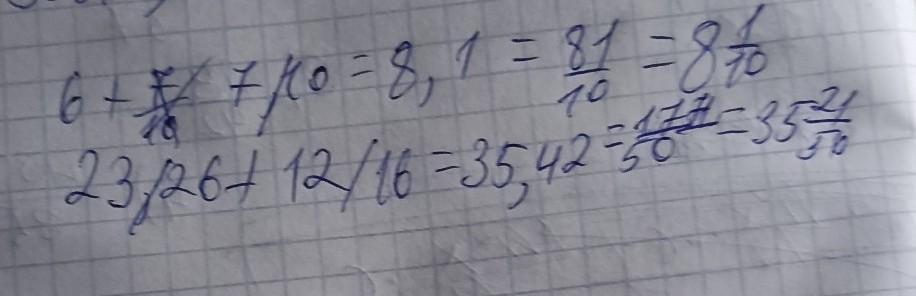 6 + 7/10 = 8,1 = 81/10 = 8 1/10
23,26 + 12/16 = 35,42 = 1771/50 = 35 21/50